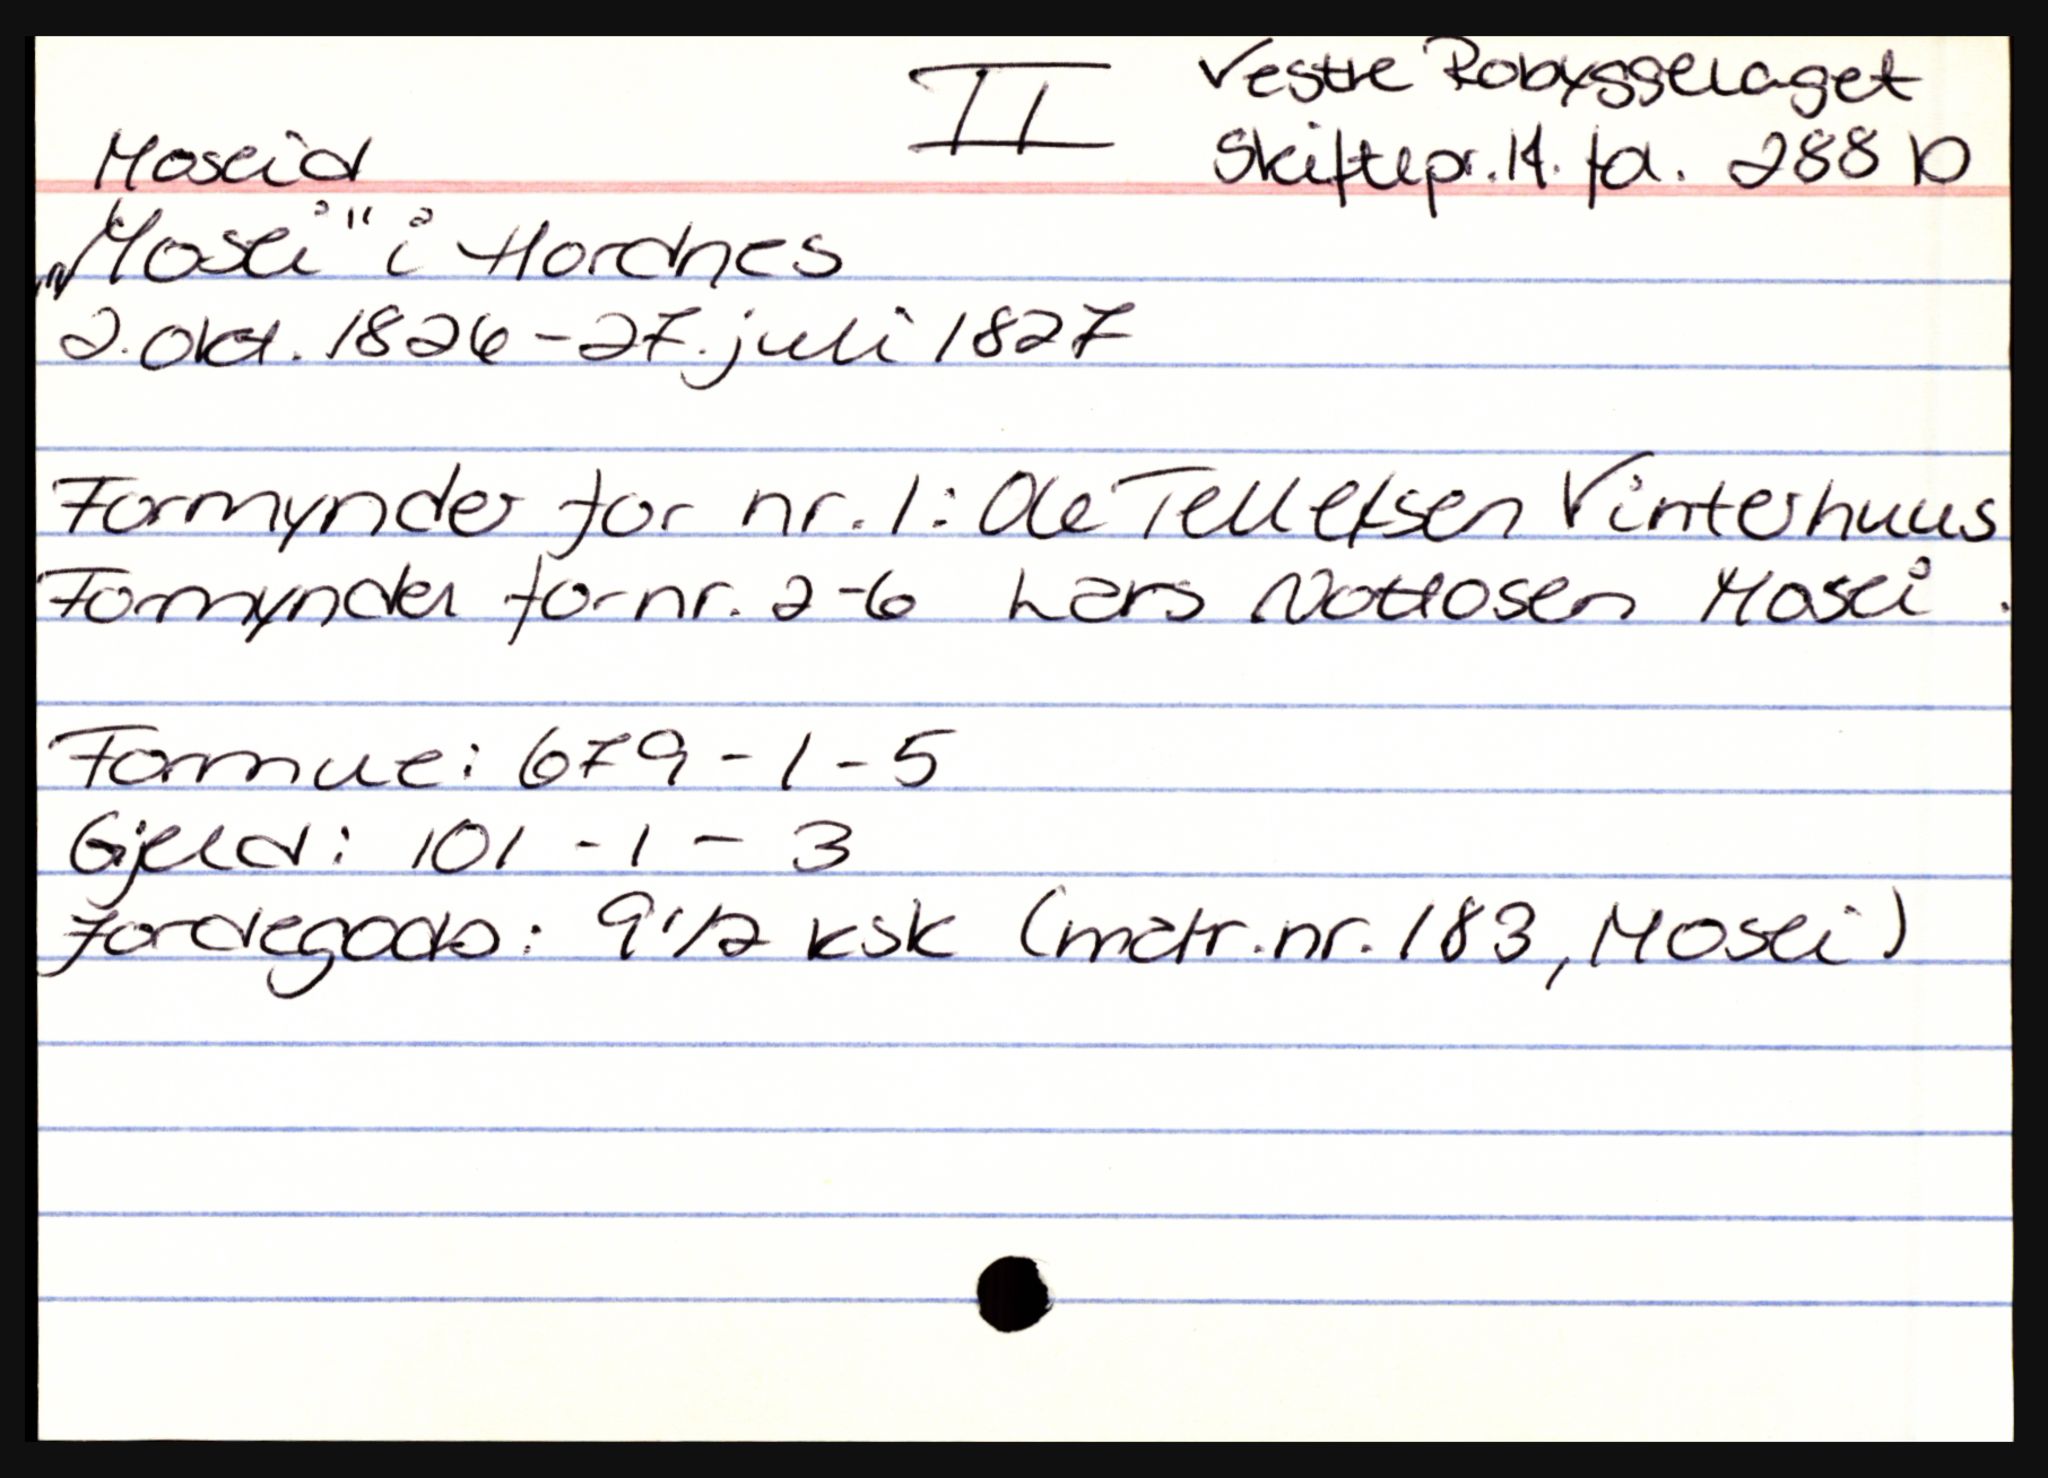 II
Vestre Robyggelaget
Moseid
Skiftepr. 14. fol. 288 b
"Mosei" i Hordnes
2. okt. 1826 - 27. juli 1827
Formynder for nr. 1: Ole Tellefsen Vinterhuus
Formynder for nr. 2-6 Lars Nottosen Mosei.
Formue: 679 - 1 - 5
Gjeld: 101 - 1 - 3
Jordegods: 9 1/2 ksk (matr.nr. 183, Mosei)